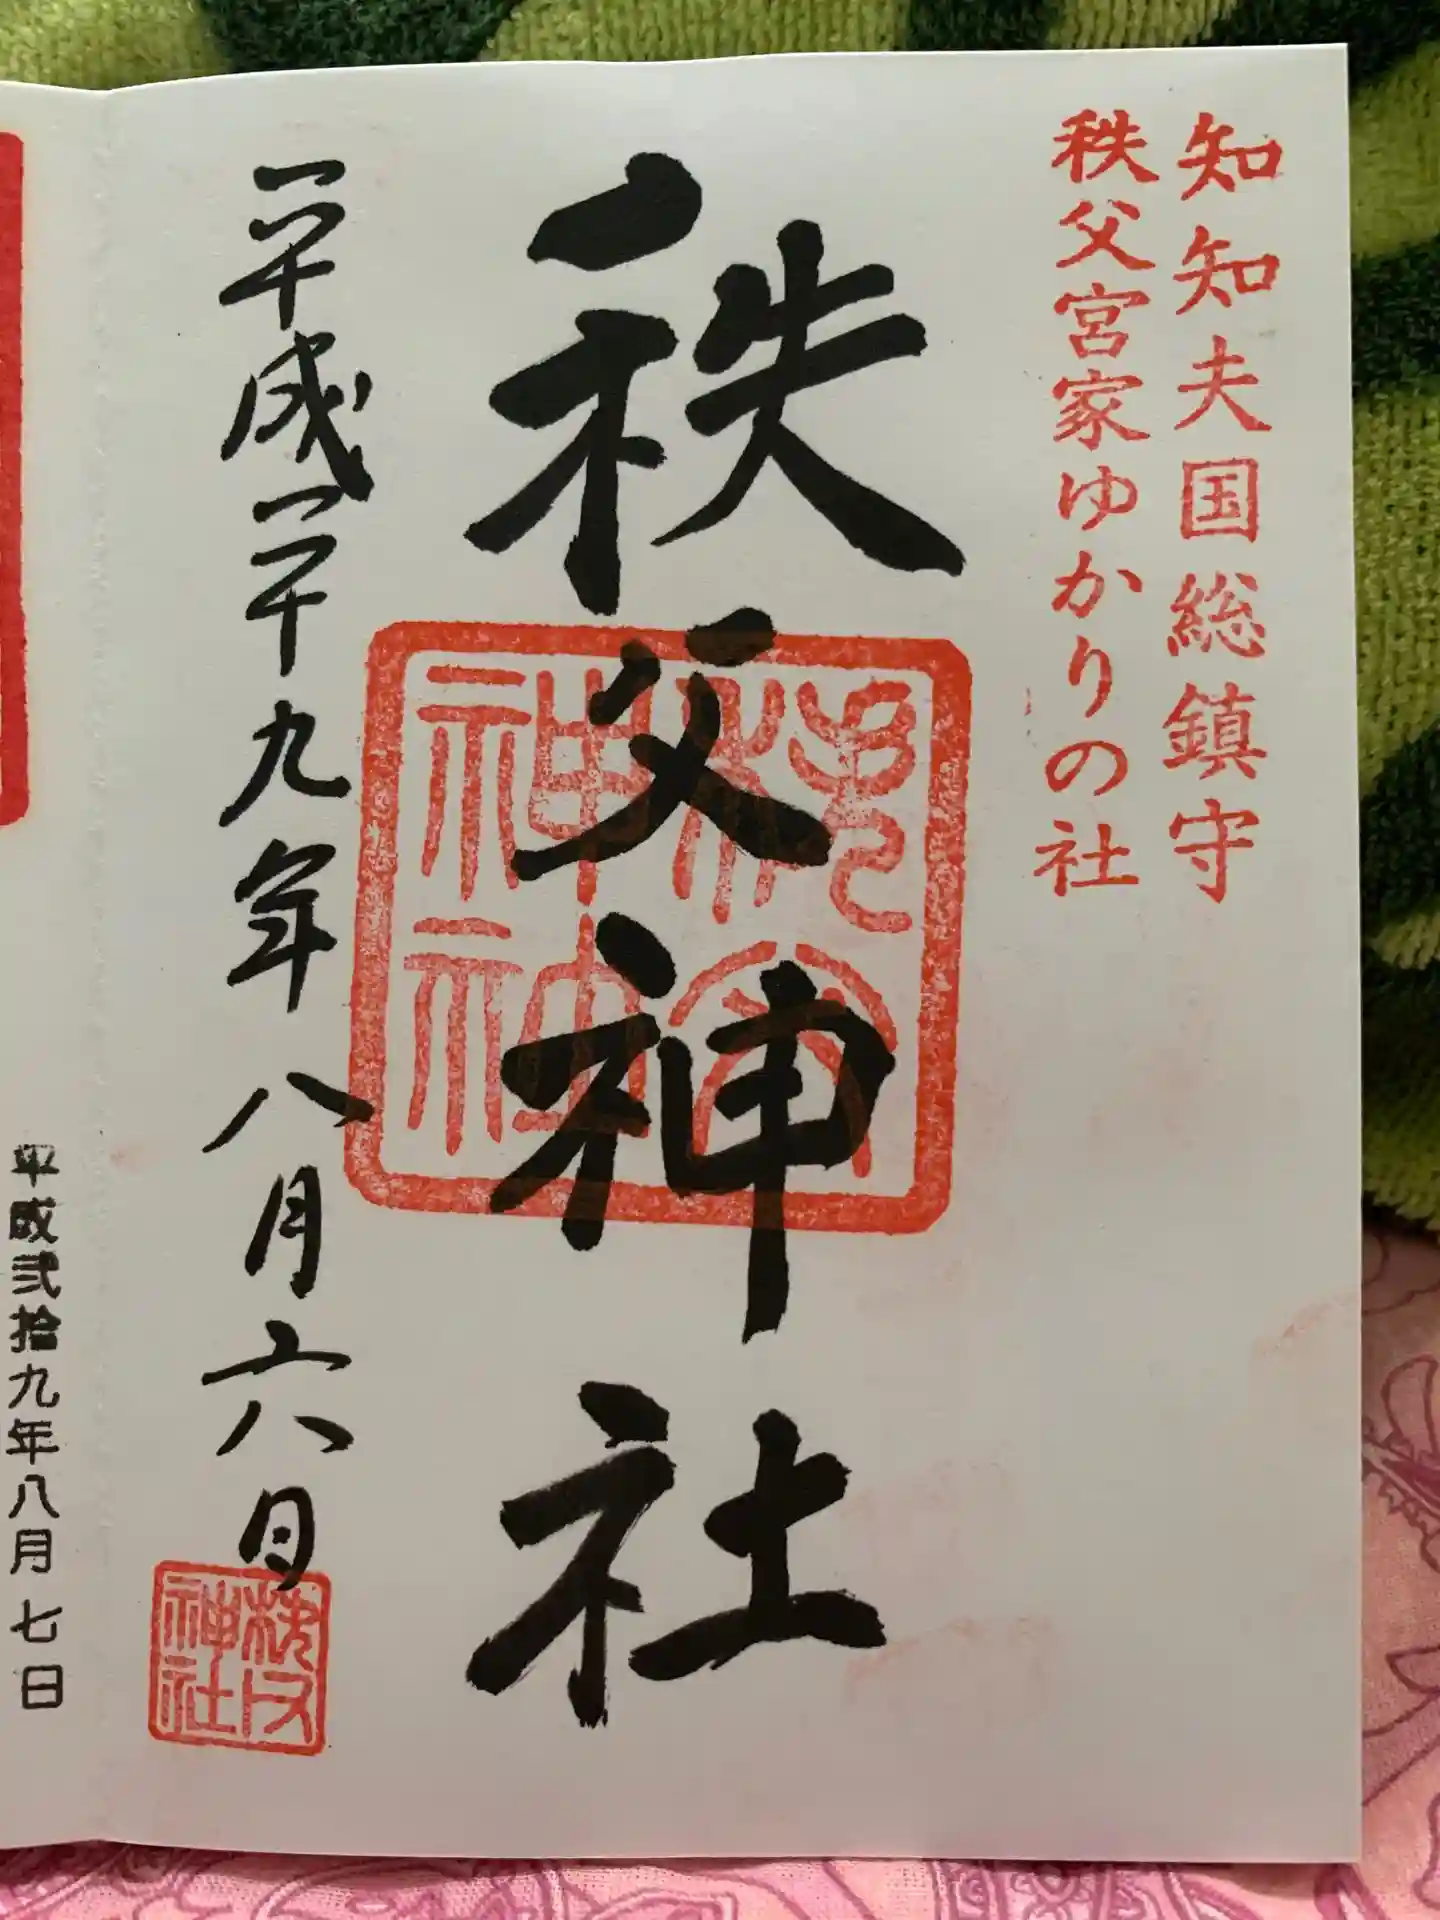 知知夫国総鎮守
秩父宮家ゆかりの社
秩父神社
秩父
神社
平成二十九年八月六日
秩父
神社
平成弐拾九年八月七日